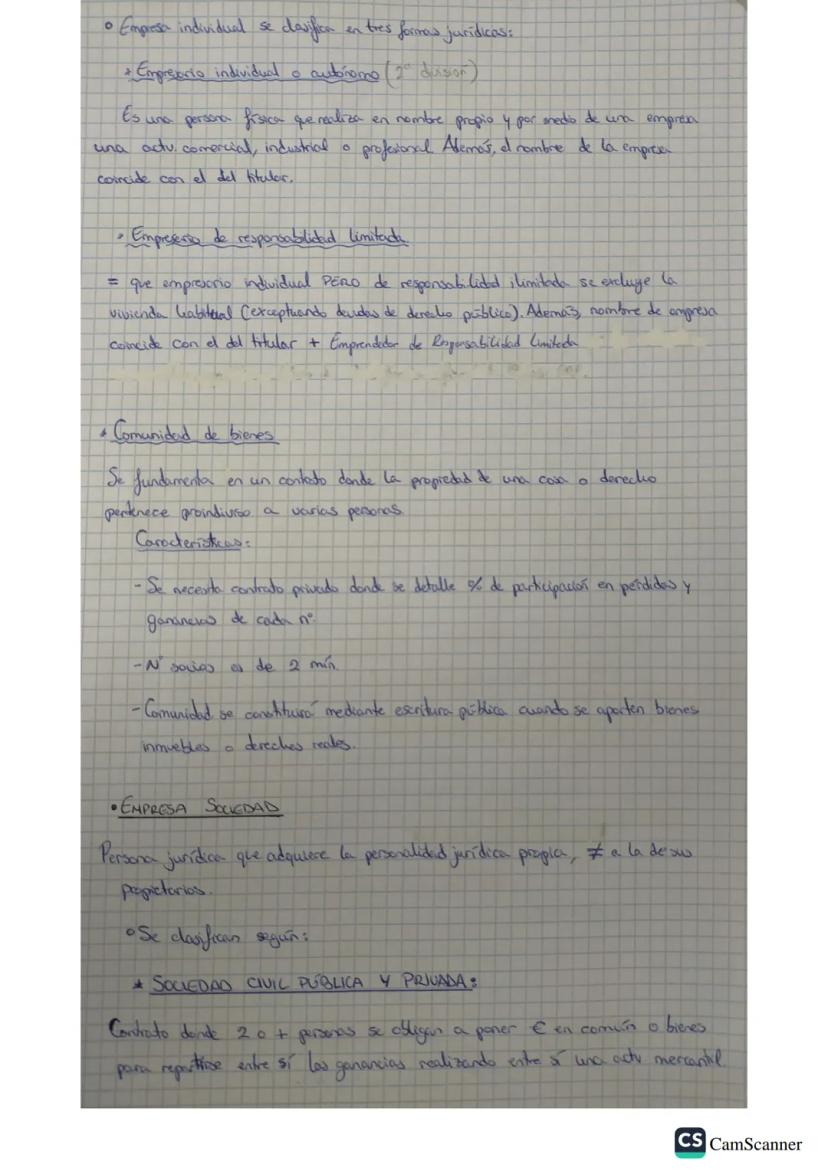 ° Empresa individual se clasifica en tres formas jurídicas:
* Empresario individual o autónomo (2ª división)
Es una persona física que realiza en nombre propio y por medio de una empresa
una actv. comercial, industrial o profesional. Además, el nombre de la empresa
coincide con el del titular.
* Empresario de responsabilidad limitada
= que empresario individual PERO de responsabilidad ilimitada se excluye la
vivienda habitual (exceptuando deudas de derecho público). Además, nombre de empresa
coincide con el del titular + Emprendedor de Responsabilidad Limitada
* Comunidad de bienes
Se fundamenta en un contrato donde la propiedad de una cosa o derecho
pertenece proindiviso a varias personas.
Características:
- Se necesita contrato privado donde se detalle % de participación en pérdidas y
ganancias de cada nº.
- Nº socios es de 2 mín.
- Comunidad se constituirá mediante escritura pública cuando se aporten bienes
inmuebles o derechos reales.
• EMPRESA SOCIEDAD
Persona jurídica que adquiere la personalidad jurídica propia, ≠ a la de sus
propietarios.
° Se clasifican según:
* SOCIEDAD CIVIL PÚBLICA Y PRIVADA:
Contrato donde 2 o + personas se obligan a poner € en común o bienes
para repartirse entre sí las ganancias realizando entre sí una actv mercantil.
CS CamScanner